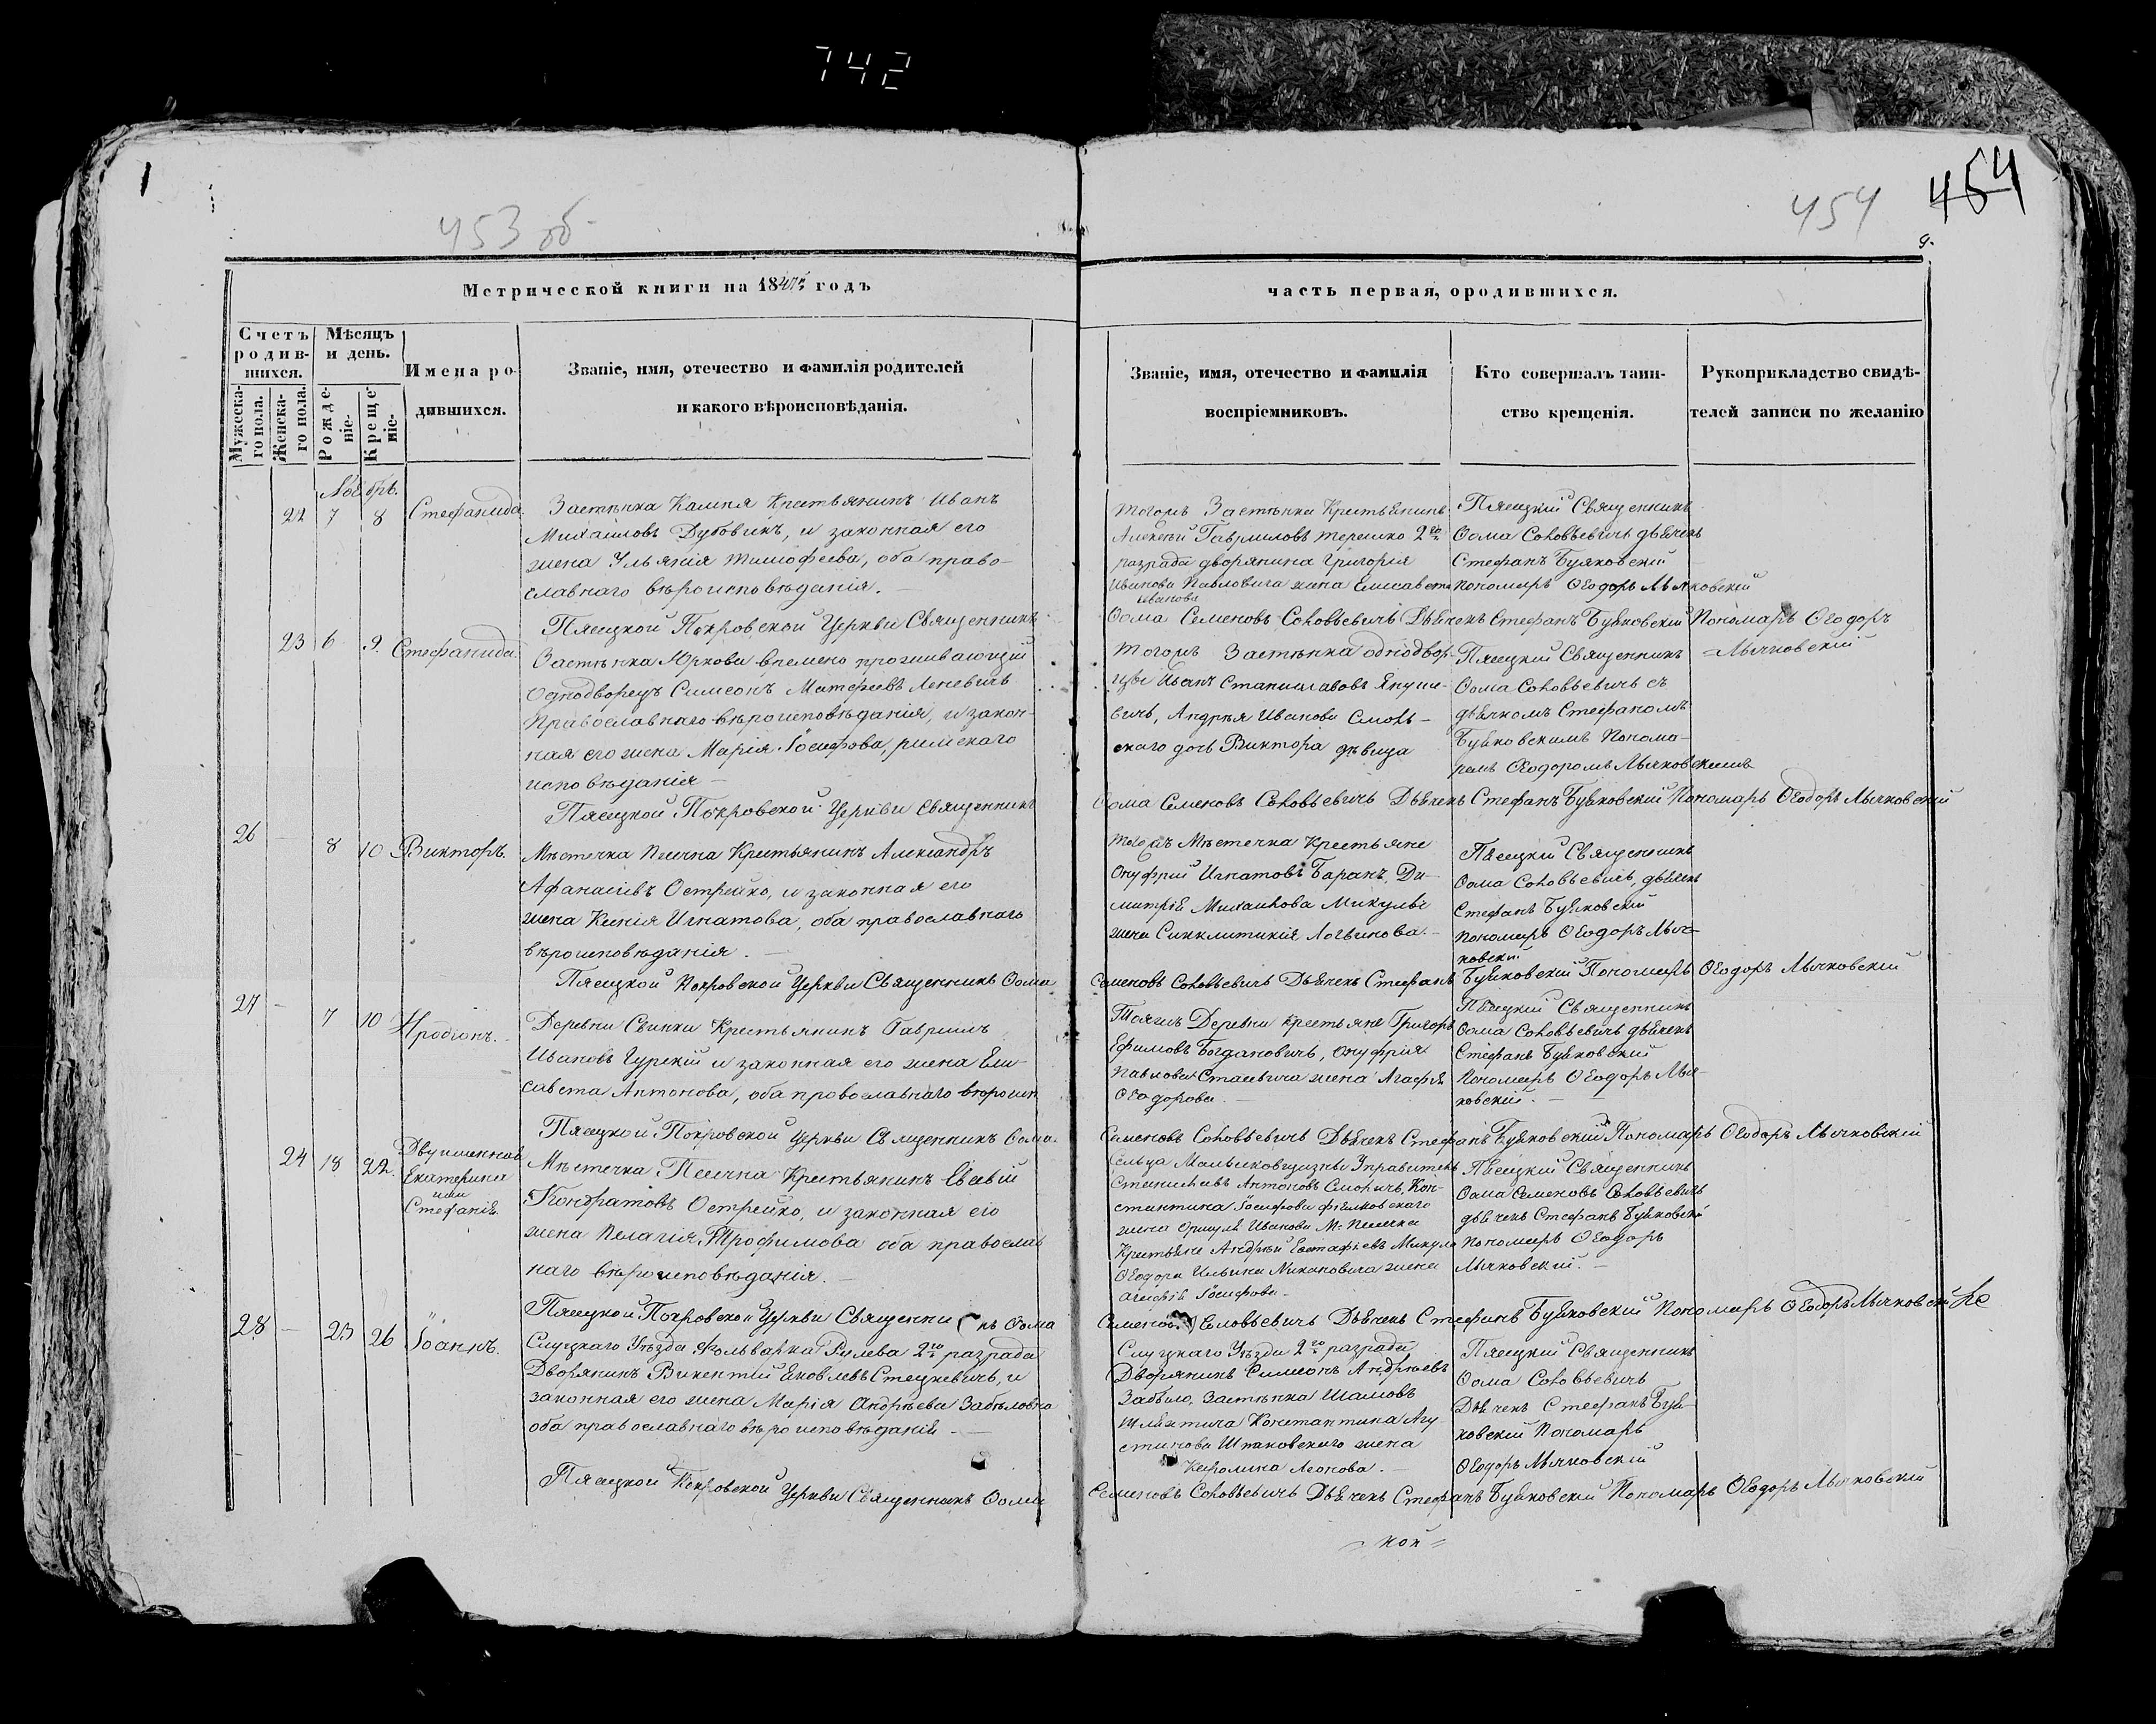 742
1
453 об
454
454
9.
Метрической книги на 1847й годъ
часть первая, о родившихся.
Счетъ родив-
шихся.
Мужеска-
го пола.
Женска-
го пола.
Мѣсяцъ
и день.
Рожде-
ніе.
Креще-
ніе.
Имена ро-
дившихся.
Званіе, имя, отечество и фамилія родителей
и какого вѣроисповѣданія.
Званіе, имя, отечество и фамилія
воспріемниковъ.
Кто совершалъ таин-
ство крещенія.
Рукоприкладство свидѣ-
телей записи по желанію
Ноябрь.
22 7 8 Стефанида
Застѣнка Камня Крестьянинъ Иванъ
Михаиловъ Дубовикъ, и законная его
жена Ульянія Тимофеева, оба право-
славнаго вѣроисповѣданія.
тогожъ Застѣнка Крестьянинъ
Алексѣй Гавриловъ Терешко 2го
разрада дворянина Григорія
Иванова Павловича жена Елисавета
Иванова
Пясецкій Священникъ
Ѳома Соловьевичь дьячекъ
Стефанъ Буяковскій
пономарь Ѳеодоръ Лычковскій
Пясецкой Покровской Церкви Священникъ
Ѳома Семеновъ Соловьевичь Дьячекъ Стефанъ Буяковскій Пономарь Ѳеодоръ
Лычковскій
23 6 9. Стефанида.
Застѣнка Юркова времено проживающій
Однодворецъ Симеонъ Матфеевъ Леневичь
Православнаго вѣроисповѣданія, и закон-
ная его жена Марія Іосифова, римскаго
исповѣданія
тогожъ Застѣнка однодвор-
цы Иванъ Станиславовъ Януш-
вичь, Андрея Иванова Смоль-
скаго дочь Викторія дѣвица
Пясецкій Священникъ
Ѳома Соловьевичь съ
дьячкомъ Стефаномъ
Буяковскимъ Понома-
ремъ Ѳеодоромъ Лычковскимъ
Пясецкой Покровской Церкви Священникъ
Ѳома Семеновъ Соловьевичь Дьячекъ Стефанъ Буяковскій Пономарь Ѳеодоръ Лычковскій
26 8 10 Викторъ.
Мѣстечка Песочна Крестьянинъ Александръ
Афанасіевъ Острейко, и законная его
жена Ксенія Игнатова, оба православнаго
вѣроисповѣданія.
тогожъ Мѣстечка Крестьяне
Онуфрій Игнатовъ Баранъ, Ди-
митрія Михаилова Микулы
жена Синклитикія Логвинова.
Пясецкій Священникъ
Ѳома Соловьевичь, дьячекъ
Стефанъ Буяковскій
пономарь Ѳеодоръ Лыч-
ковскій
Пясецкой Покровской Церкви Священникъ Ѳома
Семеновъ Соловьевичь Дьячекъ Стефанъ Буяковскій Пономарь Ѳеодоръ Лычковскій
27 7 10 Иродіонъ.
Деревни Свинки Крестьянинъ Гавриилъ
Ивановъ Гурскій и законная его жена Ели-
савета Антонова, оба православнаго вѣроисп
Тойжъ Деревни Крестьяне Григорь
Ефимовъ Богдановичь, Онуфрія
Павлова Стасевича жена Агафія
Ѳеодорова.
Пясецкій Священникъ
Ѳома Соловьевичь дьячекъ
Стефанъ Буяковскій
Пономарь Ѳеодоръ Лыч-
ковскій.
Пясецкой Покровской Церкви Священникъ Ѳома
Семеновъ Соловьевичь Дьячекъ Стефанъ Буяковскій Пономарь Ѳеодоръ Лычковскій
24 18 22 Двуименная
Екатерина
или
Стефанія.
Мѣстечка Песочна Крестьянинъ Евсевій
Кондратовъ Острейко, и законная его
жена Пелагія Трофимова оба православ
наго вѣроисповѣданія.
Сельца Управитель
Станиславъ Антоновъ Кон-
стантина Іосифова
жена Иванова М. Песочна
Крестьяне Андрей Евстафіевъ Микула
Ѳеодора Ильина жена
Агафія Іосифова
Пясецкій Священникъ
Ѳома Семеновъ Соловьевичь
дьячекъ Стефанъ Буяковскій
Пономарь Ѳеодоръ
Лычковскій.
Пясецкой Покровской Церкви Священникъ Ѳома
Семеновъ Соловьевичь Дьячекъ Стефанъ Буяковскій Пономарь Ѳеодоръ Лычковскій
28 23 26 Іоаннъ.
Слуцкаго Уѣзда Фольварка Рулева 2го разрада
Дворянинъ Викентій Яковлевъ Стецкевичь, и
законная его жена Марія Андреева Забѣловна
оба православнаго вѣроисповѣданія
Слуцкаго Уѣзда 2го разрада
Дворянинъ Симеонъ Андреевъ
Забѣло, Застѣнка Шамовъ
Шляхтича Константина Агу-
стинова Шпаковскаго жена
Каролина Леонова.
Пясецкій Священникъ
Ѳома Соловьевичь
Дьячекъ Стефанъ Буя-
ковскій Пономарь
Ѳеодоръ Лычковскій
Пясецкой Покровской Церкви Священникъ Ѳома
Семеновъ Соловьевичь Дьячекъ Стефанъ Буяковскій Пономарь Ѳеодоръ Лычковскій